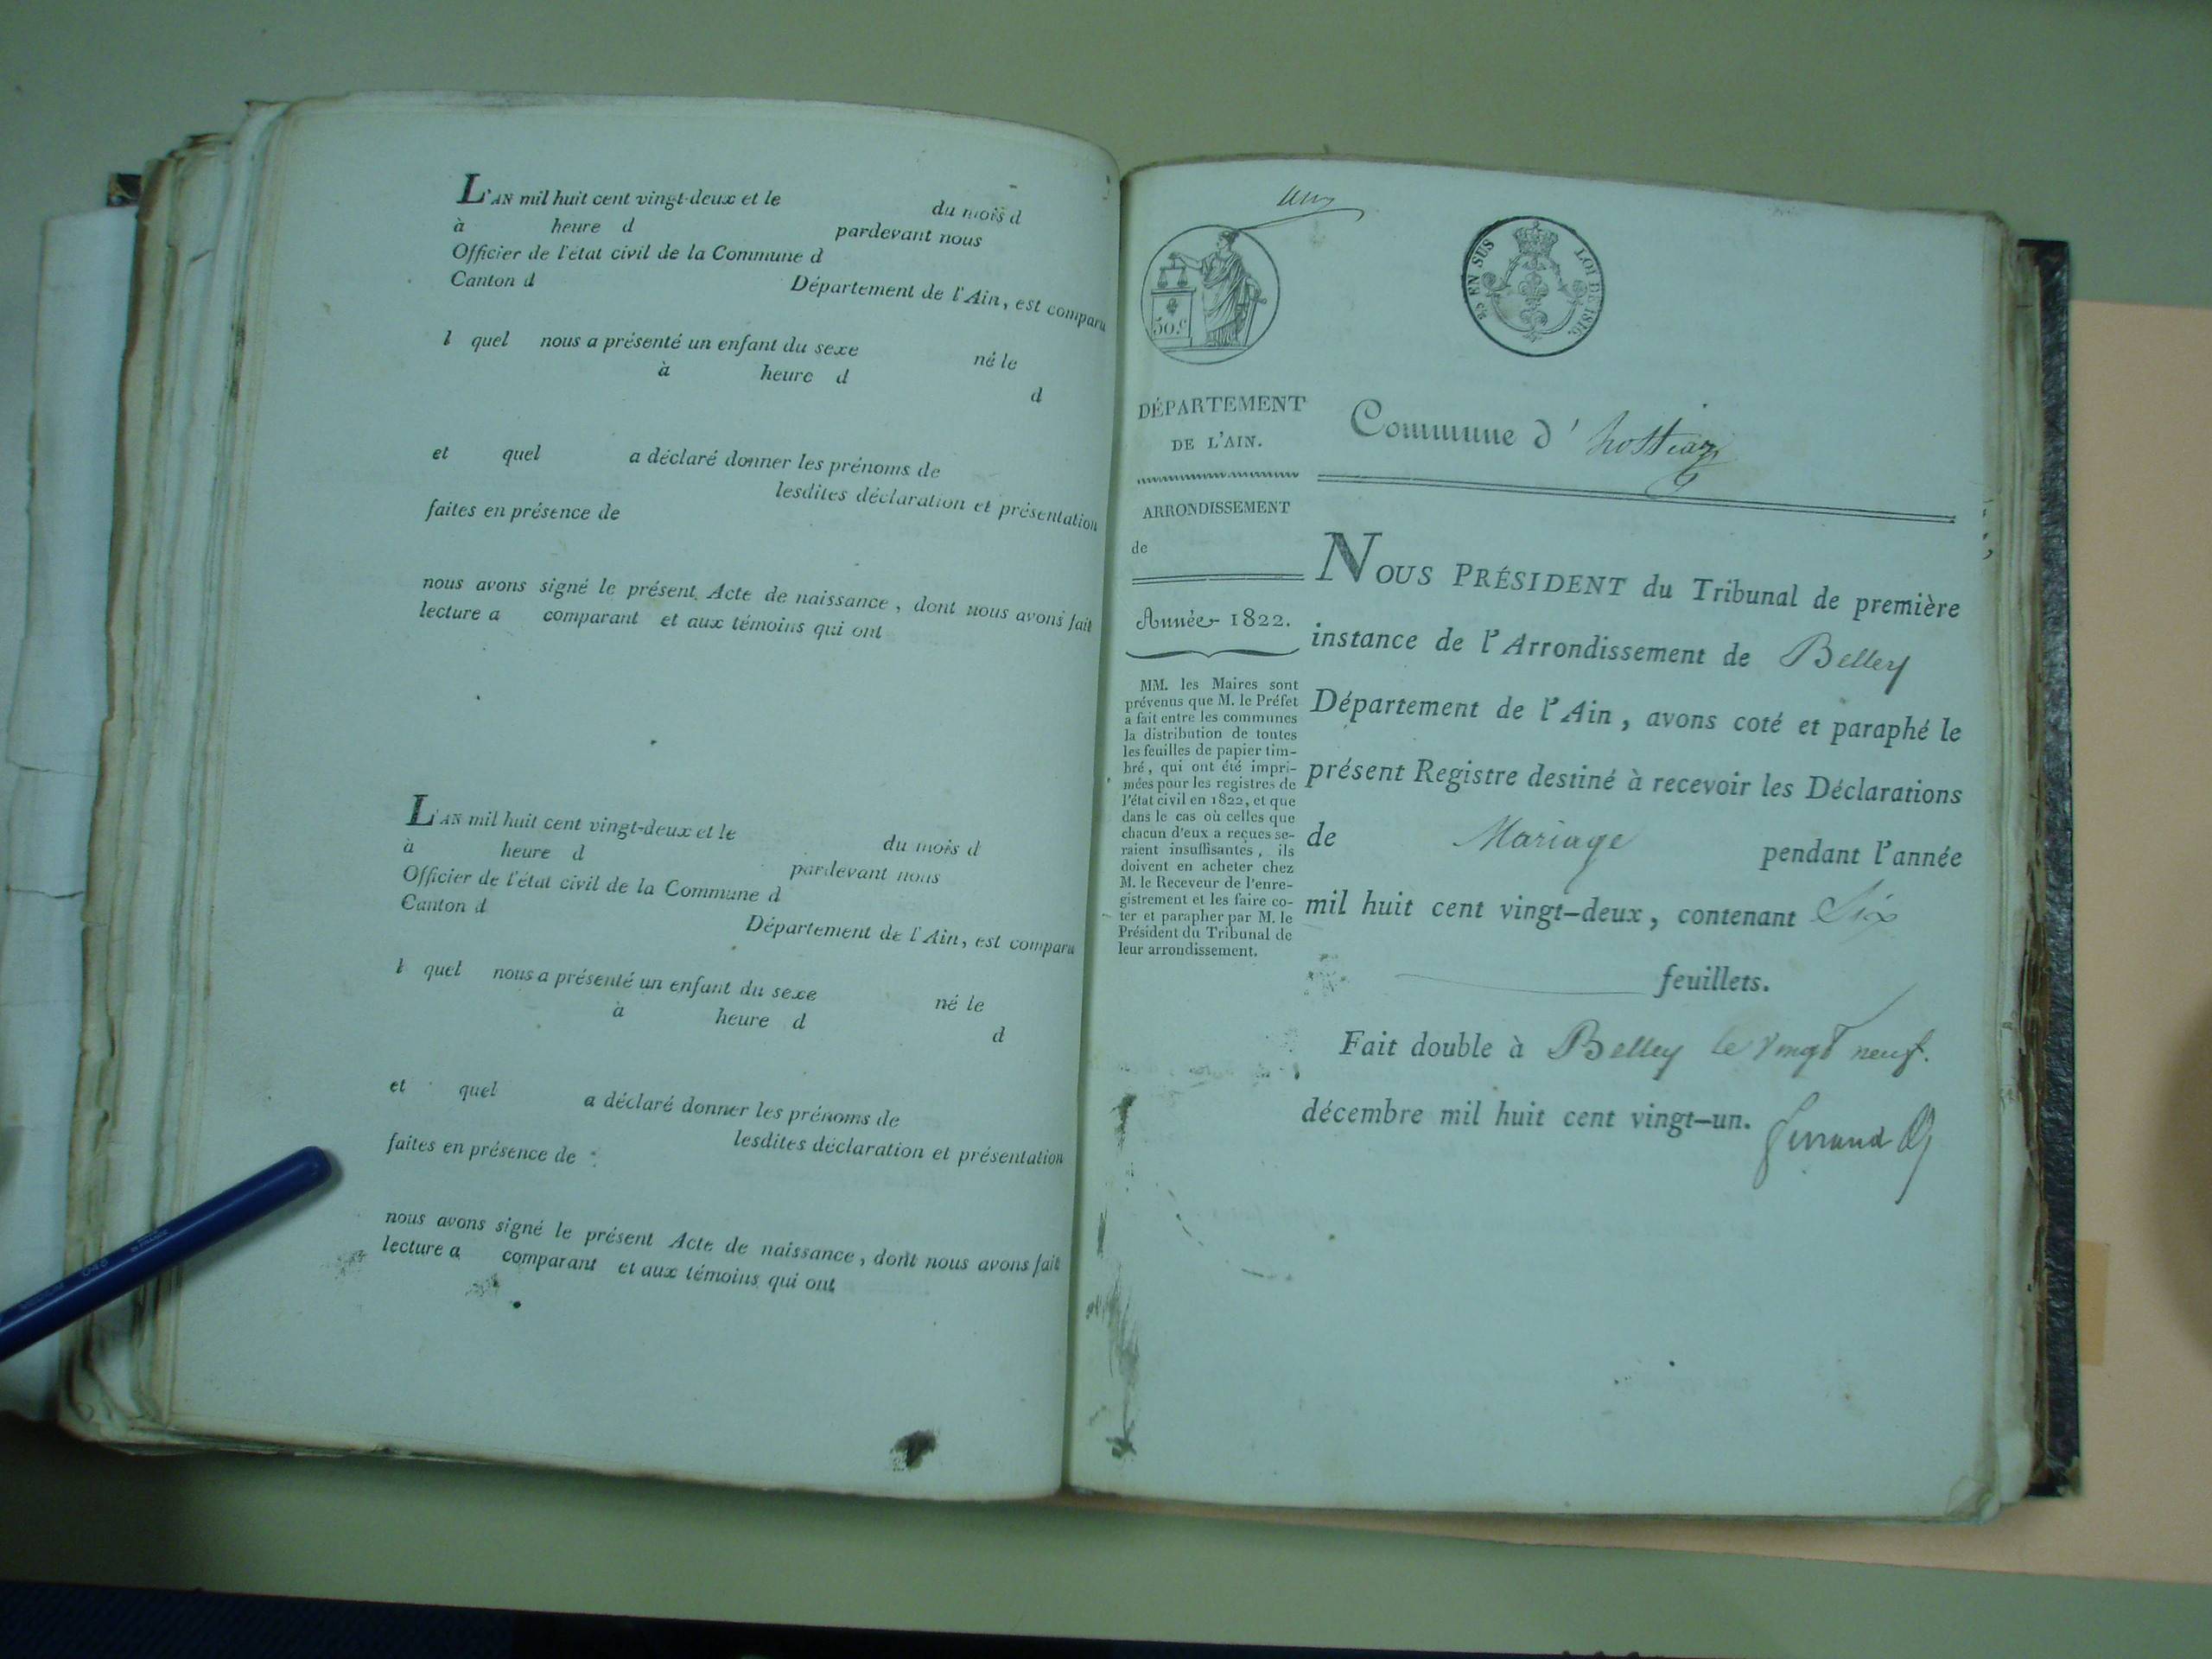 L'AN mil huit cent vingt-deux et le du mois d
à heure d pardevant nous
Officier de l'état civil de la Commune d
Canton d Département de l'Ain, est comparu
l quel nous a présenté un enfant du sexe né le
à heure d
d
et quel a déclaré donner les prénoms de
lesdites déclaration et présentation
faites en présence de
nous avons signé le présent Acte de naissance, dont nous avons fait
lecture a comparant et aux témoins qui ont
L'AN mil huit cent vingt-deux et le du mois d
à heure d pardevant nous
Officier de l'état civil de la Commune d
Canton d Département de l'Ain, est comparu
l quel nous a présenté un enfant du sexe né le
à heure d
d
et quel a déclaré donner les prénoms de
lesdites déclaration et présentation
faites en présence de
nous avons signé le présent Acte de naissance, dont nous avons fait
lecture a comparant et aux témoins qui ont
50.c
EN SUS
LOI DE 1816.
DÉPARTEMENT
DE L'AIN.
ARRONDISSEMENT
de
Année 1822.
MM. les Maires sont
prévenus que M. le Préfet
a fait entre les communes
la distribution de toutes
les feuilles de papier tim-
bré, qui ont été impri-
mées pour les registres de
l'état civil en 1822, et que
dans le cas où celles que
chacun d'eux a reçues se-
raient insuffisantes, ils
doivent en acheter chez
M. le Receveur de l'enre-
gistrement et les faire co-
ter et parapher par M. le
Président du Tribunal de
leur arrondissement.
Commune d'hostiaz
NOUS PRÉSIDENT du Tribunal de première
instance de l'Arrondissement de Belley
Département de l'Ain, avons coté et paraphé le
présent Registre destiné à recevoir les Déclarations
de Mariage pendant l'année
mil huit cent vingt-deux, contenant Six
feuillets.
Fait double à Belley le vingt neuf.
décembre mil huit cent vingt-un.